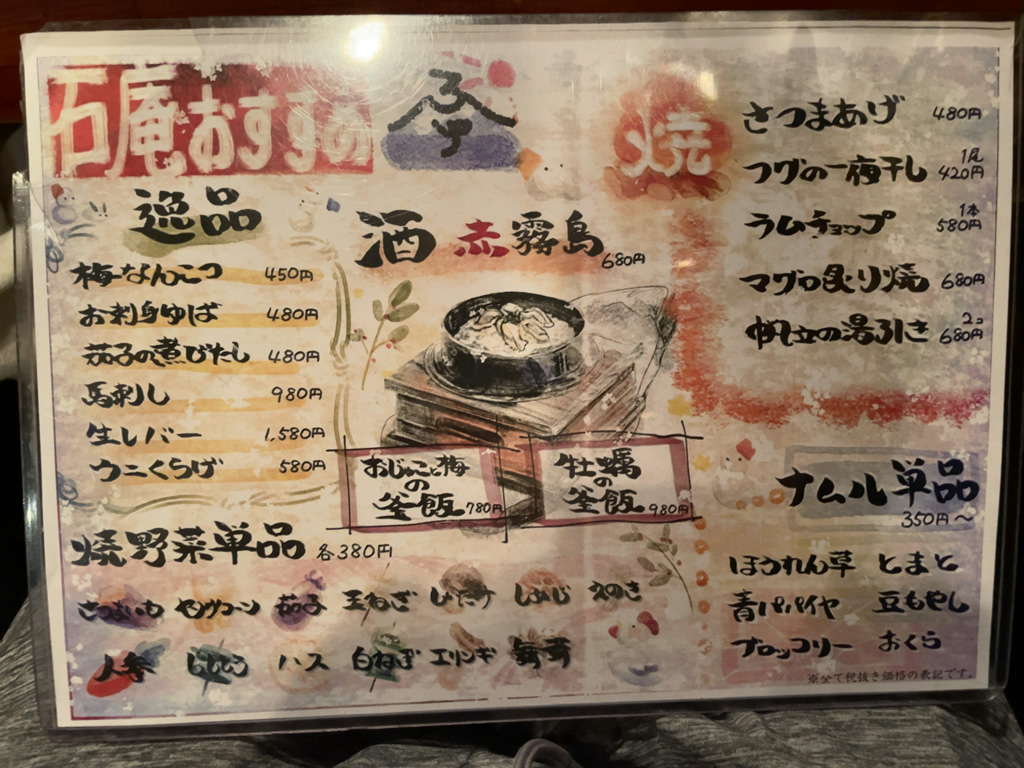 石庵おすすめ
逸品
梅なんこつ 450円
お刺身ゆば 480円
茄子の煮びたし 480円
馬刺し 980円
生レバー 1,580円
ウニくらげ 580円
酒 赤霧島 680円
おじゃこと梅の釜飯 780円
牡蠣の釜飯 980円
焼
さつまあげ 480円
フグの一夜干し 1尾 420円
ラムチョップ 1本 580円
マグロ炙り焼 680円
帆立の湯引き 2コ 680円
焼野菜単品 各380円
さつまいも ヤングコーン 茄子 玉ねぎ しいたけ しめじ えのき
人参 ししとう ハス 白ねぎ エリンギ 舞茸
ナムル単品
350円〜
ほうれん草 とまと
青パパイヤ 豆もやし
ブロッコリー おくら
※全て税抜き価格の表記です。